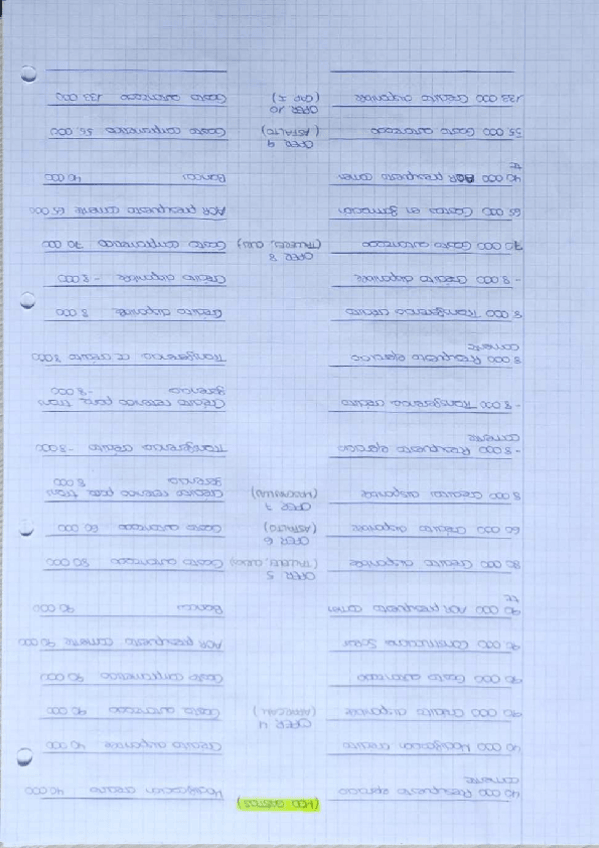 (MOD GASTOS)
40 000 Presupuesto ejercicio Modificación crédito 40 000
corriente
40 000 Modificación crédito Crédito disponible 40 000
OPER 4
90 000 Crédito disponible Gasto autorizado 90 000
90 000 Gasto autorizado Gasto comprometido 90 000
90 000 Construcciones ACR presupuesto corriente 90 000
90 000 ACR presupuesto corrien Bancos 90 000
te
OPER 5
80 000 Crédito disponible (TALLERES, CURSOS) Gasto autorizado 80 000
OPER 6
60 000 Crédito disponible (ASFALTO) Gasto autorizado 60 000
OPER 7
8 000 Crédito disponible (MAQUINARIA) Crédito retenido para trans
ferencia 8 000
-8 000 Presupuesto ejercicio Transferencia crédito -8 000
corriente
-8 000 Transferencia crédito Crédito retenido para trans
ferencia -8 000
8 000 Presupuesto ejercicio Transferencia de crédito 8 000
corriente
8 000 Transferencia crédito Crédito disponible 8 000
-8 000 Crédito disponible Crédito disponible -8 000
OPER 8
70 000 Gasto autorizado (TALLERES, Gasto comprometido 70 000
65 000 Gastos en formación ACR presupuesto corriente 65 000
40 000 ACR presupuesto corrien Bancos 40 000
te
OPER 9
55 000 Gasto autorizado (ASFALTO) Gasto comprometido 55 000
OPER 10
133 000 Crédito disponible (CAP I) Gasto autorizado 133 000